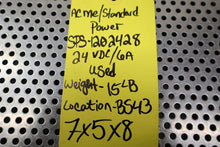 Acme/Standard
Power
SPS-1202428
24 VDC/6A
Used
Weight-15LB
Location-B543
7x5x8